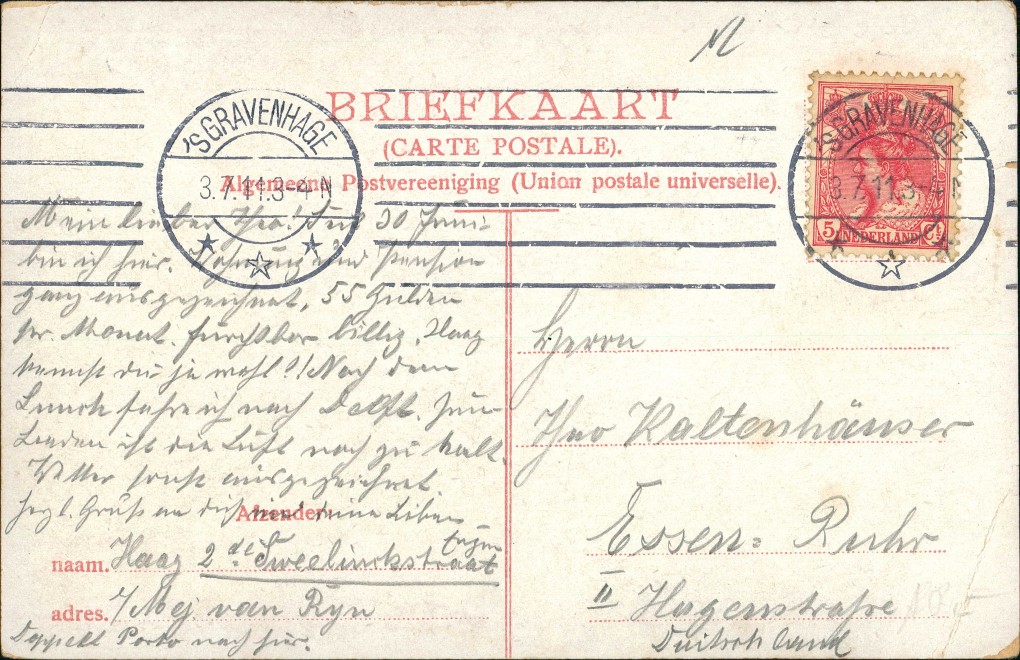 BRIEFKAART
(CARTE POSTALE).
Algemeene Postvereeniging (Union postale universelle).
'S GRAVENHAGE
3.7.11.3-4 N
'S GRAVENHAGE
3.7.11.3-4 N
5 NEDERLAND 5
Mein lieber Theo! Seit 30 Juni
bin ich hier. Wohnung und Pension
ganz ausgezeichnet, 55 Gulden
pr. Monat. furchtbar billig. Haag
kennst du ja wohl?! Nach dem
Lunch fahre ich nach Delft. Zum
Baden ist die Luft noch zu kalt.
Wetter sonst ausgezeichnet.
Herzl. Gruß an dich und deine Lieben
Eugen
Afzender
naam. Haag 2de Sweelinckstraat
adres. p/ Mej van Ryn
Doppelt Porto nach hier.
Herrn
Theo Kaltenhäuser
Essen = Ruhr
II Hagenstraße
Duitschland